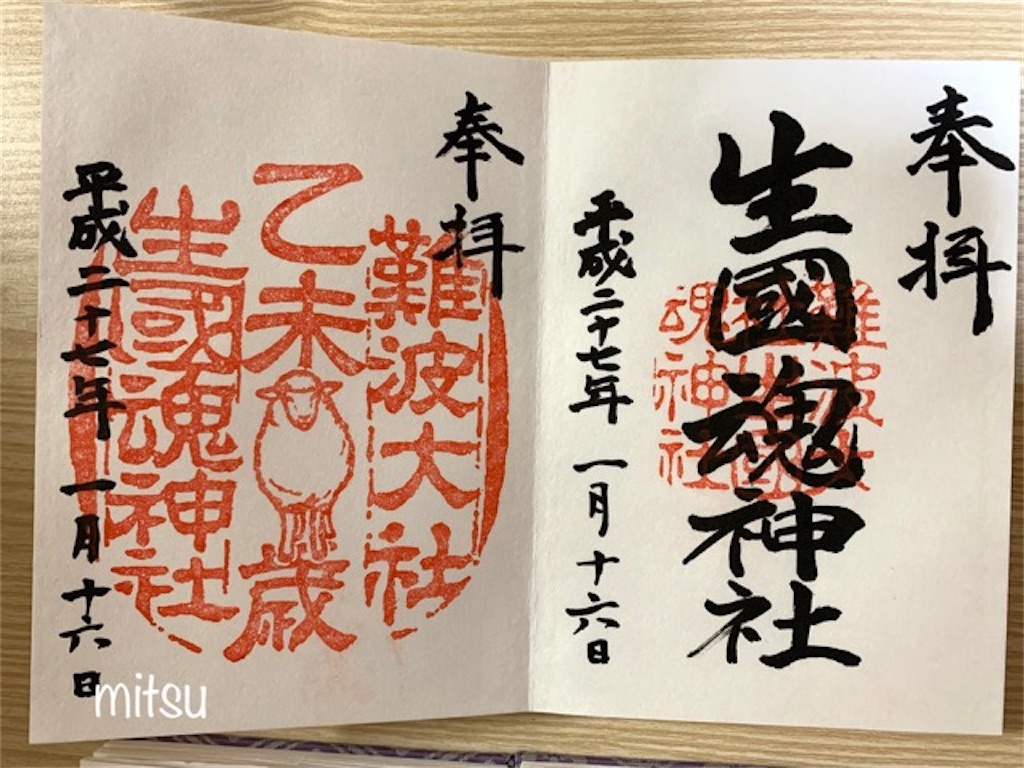 奉拝
生國魂神社
難波大
社生國
魂神社
平成二十七年 一月十六日
奉拝
難波大社
乙未歳
生國魂神社
平成二十七年一月十六日
mitsu